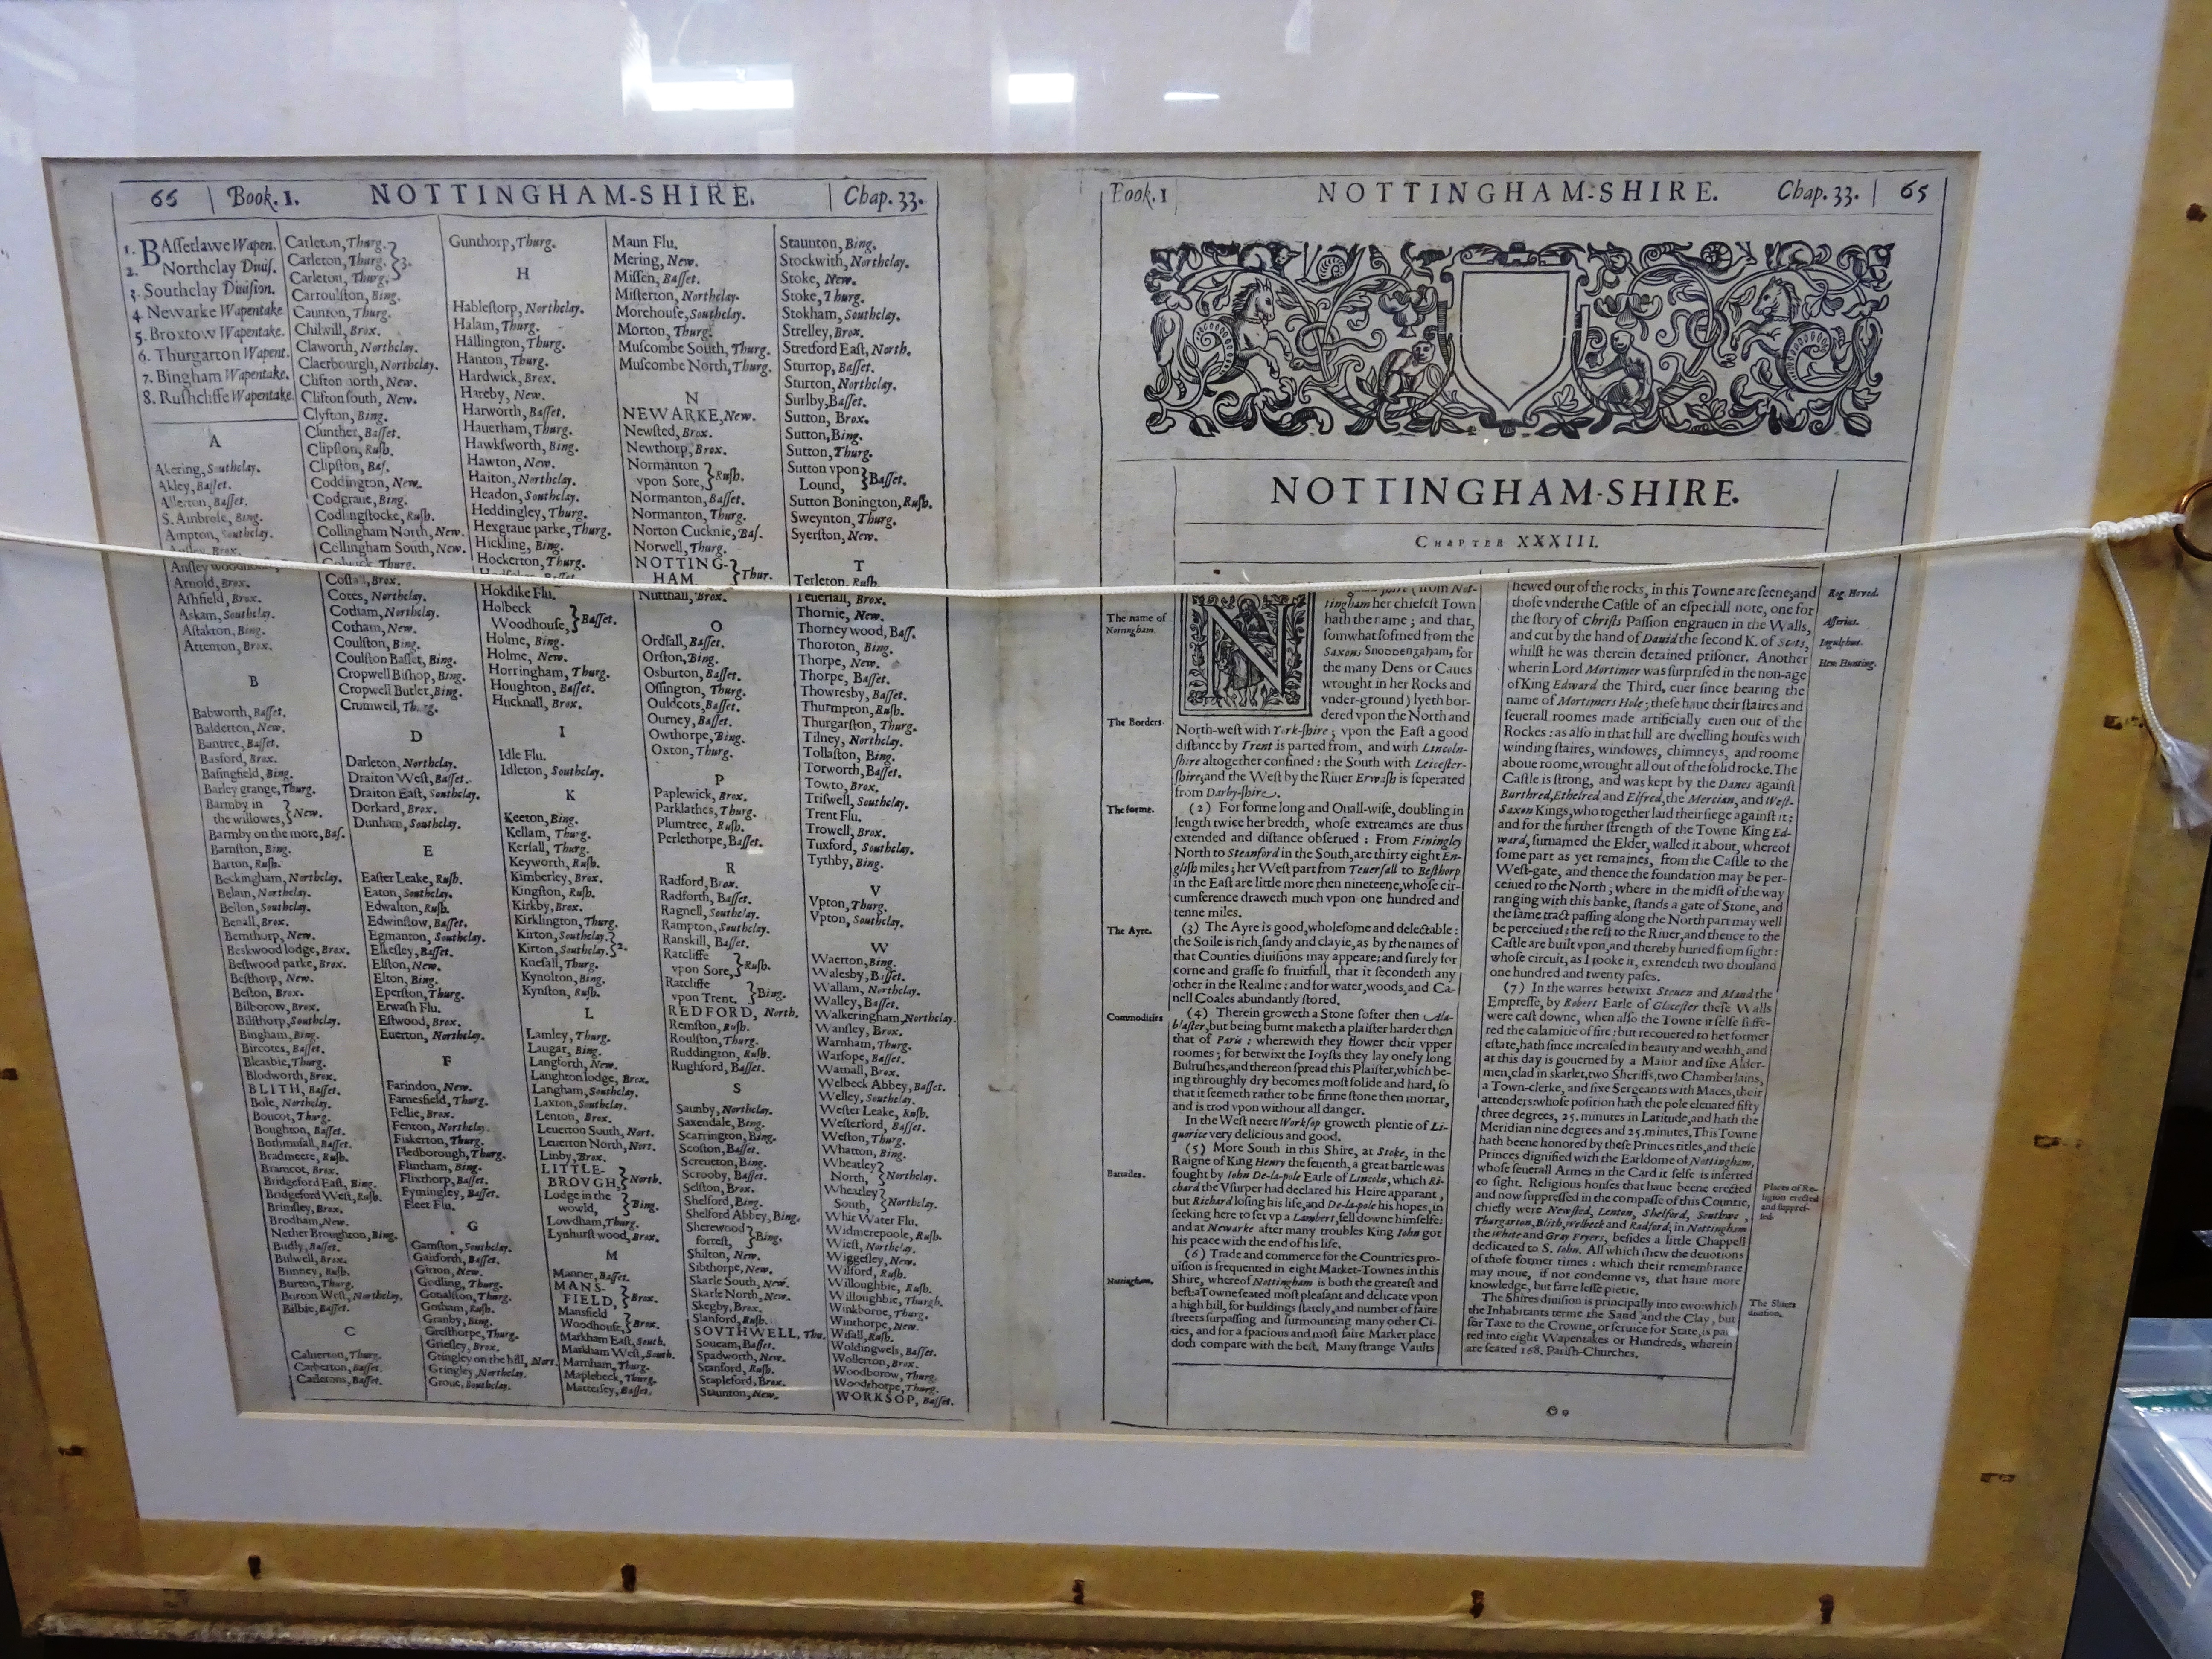 66 Book. 1. NOTTINGHAM-SHIRE. Chap. 33.
1. BAssetlawe Wapen.
2. Northclay Divis.
3. Southclay Division.
4. Newarke Wapentake.
5. Broxtow Wapentake.
6. Thurgarton Wapent.
7. Bingham Wapentake.
8. Rushcliffe Wapentake.
A
Akering, Southclay.
Akley, Basset.
Allerton, Basset.
S. Ambrose, Bing.
Ampton, Southclay.
Arnold, Brox.
Ashfield, Brox.
Askam, Southclay.
Aslakton, Bing.
Attenton, Brox.
B
Babworth, Basset.
Balderton, New.
Bantree, Basset.
Basford, Brox.
Basingfield, Bing.
Barley grange, Thurg.
Barmby in
the willowes, } New.
Barmby on the more, Bas.
Barnston, Bing.
Barton, Rush.
Beckingham, Northclay.
Belam, Northclay.
Beilon, Southclay.
Benall, Brox.
Bernthorp, New.
Beskwood lodge, Brox.
Bestwood parke, Brox.
Besthorp, New.
Beston, Brox.
Bilborow, Brox.
Bilsthorp, Southclay.
Bingham, Bing.
Bircotes, Basset.
Bleasbie, Thurg.
Blodworth, Brox.
BLITH, Basset.
Bole, Northclay.
Boucot, Thurg.
Boughton, Basset.
Bothmusall, Basset.
Bradmeere, Rush.
Bramcot, Brox.
Bridgeford East, Bing.
Bridgeford West, Rush.
Brimsley, Brox.
Brodham, New.
Nether Broughton, Bing.
Budly, Basset.
Bulwell, Brox.
Binney, Rush.
Burton, Thurg.
Burton West, Northclay.
Bilbie, Basset.
C
Calverton, Thurg.
Carberton, Basset.
Carletons, Basset.
Carleton, Thurg.
Carleton, Thurg. } 3.
Carleton, Thurg.
Carroulston, Bing.
Caunton, Thurg.
Chilwill, Brox.
Claworth, Northclay.
Claerbourgh, Northclay.
Clifton north, New.
Clifton south, New.
Clyfton, Bing.
Clunther, Basset.
Clipston, Rush.
Clipston, Bas.
Coddington, New.
Codgraue, Bing.
Codlingstocke, Rush.
Collingham North, New.
Collingham South, New.
Colwick, Thurg.
Costall, Brox.
Cotes, Northclay.
Cotham, Northclay.
Cotham, New.
Coulston, Bing.
Coulston Basset, Bing.
Cropwell Bishop, Bing.
Cropwell Butler, Bing.
Crumwell, Thurg.
D
Darleton, Northclay.
Draiton West, Basset.
Draiton East, Southclay.
Dorkard, Brox.
Dunham, Southclay.
E
Easter Leake, Rush.
Eaton, Southclay.
Edwalton, Rush.
Edwinstow, Basset.
Egmanton, Southclay.
Elkesley, Basset.
Elston, New.
Elton, Bing.
Eperston, Thurg.
Erwash Flu.
Estwood, Brox.
Euerton, Northclay.
F
Farindon, New.
Farnesfield, Thurg.
Fellie, Brox.
Fenton, Northclay.
Fiskerton, Thurg.
Fledborough, Thurg.
Flintham, Bing.
Flixthorp, Basset.
Fymingley, Basset.
Fleet Flu.
G
Gamston, Southclay.
Gaitforth, Basset.
Girton, New.
Godling, Thurg.
Gonalston, Thurg.
Gotham, Rush.
Granby, Bing.
Gresthorpe, Thurg.
Griesley, Brox.
Gringley on the hill, Nort.
Gringley, Northclay.
Groue, Southclay.
Gunthorp, Thurg.
H
Hablestorp, Northclay.
Halam, Thurg.
Hallington, Thurg.
Hanton, Thurg.
Hardwick, Brox.
Hareby, New.
Harworth, Basset.
Hauerham, Thurg.
Hawksworth, Bing.
Hawton, New.
Haiton, Northclay.
Headon, Southclay.
Heddingley, Thurg.
Hexgraue parke, Thurg.
Hickling, Bing.
Hockerton, Thurg.
Hokdike Flu.
Holbeck
Woodhouse, } Basset.
Holme, Bing.
Holme, New.
Horringham, Thurg.
Houghton, Basset.
Hucknall, Brox.
I
Idle Flu.
Idleton, Southclay.
K
Keeton, Bing.
Kellam, Thurg.
Kersall, Thurg.
Keyworth, Rush.
Kimberley, Brox.
Kingston, Rush.
Kirkby, Brox.
Kirklington, Thurg.
Kirton, Southclay.
Kirton, Southclay. } 2.
Knesall, Thurg.
Kynolton, Bing.
Kynston, Rush.
L
Lamley, Thurg.
Laugar, Bing.
Langforth, New.
Langhton lodge, Brox.
Langham, Southclay.
Laxton, Southclay.
Lenton, Brox.
Leuerton South, Nort.
Leuerton North, Nort.
Linby, Brox.
LITTLE-
BROVGH, } North.
Lodge in the
wowld, } Bing.
Lowdham, Thurg.
Lynhurst wood, Brox.
M
Manner, Basset.
MANS-
FIELD, } Brox.
Mansfield
Woodhouse, } Brox.
Markham East, South.
Markham West, South.
Marnham, Thurg.
Maplebeck, Thurg.
Mattersey, Basset.
Maun Flu.
Mering, New.
Missen, Basset.
Misterton, Northclay.
Morehouse, Southclay.
Morton, Thurg.
Muscombe South, Thurg.
Muscombe North, Thurg.
N
NEWARKE, New.
Newsted, Brox.
Newthorp, Brox.
Normanton
vpon Sore, } Rush.
Normanton, Basset.
Normanton, Thurg.
Norton Cucknie, Bas.
Norwell, Thurg.
NOTTING-
HAM } Thur.
Nutthall, Brox.
O
Ordsall, Basset.
Orston, Bing.
Osburton, Basset.
Ossington, Thurg.
Ouldcots, Basset.
Ourney, Basset.
Owthorpe, Bing.
Oxton, Thurg.
P
Paplewick, Brox.
Parklathes, Thurg.
Plumtree, Rush.
Perlethorpe, Basset.
R
Radford, Brox.
Radforth, Basset.
Ragnell, Southclay.
Rampton, Southclay.
Ranskill, Basset.
Ratcliffe
vpon Sore, } Rush.
Ratcliffe
vpon Trent. } Bing.
REDFORD, North.
Remston, Rush.
Roulston, Thurg.
Ruddington, Rush.
Rughford, Basset.
S
Saunby, Northclay.
Saxendale, Bing.
Scarrington, Bing.
Scofton, Basset.
Screueton, Bing.
Scrooby, Basset.
Selston, Brox.
Shelford, Bing.
Shelford Abbey, Bing.
Sherewood
forrest, } Bing.
Shilton, New.
Sibthorpe, New.
Skarle South, New.
Skarle North, New.
Skegby, Brox.
Stanford, Rush.
SOVTHWELL, Thu.
Soucam, Basset.
Spadworth, New.
Stanford, Rush.
Stapleford, Brox.
Staunton, New.
Staunton, Bing.
Stockwith, Northclay.
Stoke, New.
Stoke, Thurg.
Stokham, Southclay.
Strelley, Brox.
Stretford East, North.
Sturtop, Basset.
Sturton, Northclay.
Surlby, Basset.
Sutton, Brox.
Sutton, Bing.
Sutton, Thurg.
Sutton vpon
Lound, } Basset.
Sutton Bonington, Rush.
Sweynton, Thurg.
Syerston, New.
T
Terleton, Rush.
Teuersall, Brox.
Thornie, New.
Thorney wood, Bass.
Thoroton, Bing.
Thorpe, New.
Thorpe, Basset.
Thowresby, Basset.
Thurmpton, Rush.
Thurgarston, Thurg.
Tilney, Northclay.
Tollaston, Bing.
Torworth, Basset.
Towto, Brox.
Triswell, Southclay.
Trent Flu.
Trowell, Brox.
Tuxford, Southclay.
Tythby, Bing.
V
Vpton, Thurg.
Vpton, Southclay.
W
Waerton, Bing.
Walesby, Basset.
Wallam, Northclay.
Walley, Basset.
Walkeringham, Northclay.
Wansley, Brox.
Warnham, Thurg.
Warsope, Basset.
Watnall, Brox.
Welbeck Abbey, Basset.
Welley, Southclay.
Wester Leake, Rush.
Westerford, Basset.
Weston, Thurg.
Whatton, Bing.
Wheatley
North, } Northclay.
Wheatley
South, } Northclay.
Whit Water Flu.
Widmerepoole, Rush.
Wiest, Northclay.
Wiggesley, New.
Wilford, Rush.
Willoughbie, Rush.
Willoughbie, Thurgh.
Winkborne, Thurg.
Winthorpe, New.
Wisall, Rush.
Woldingwels, Basset.
Wollerton, Brox.
Woodborow, Thurg.
Woodthorpe, Thurg.
WORKSOP, Basset.
Book. 1 NOTTINGHAM-SHIRE. Chap. 33. 65
NOTTINGHAM-SHIRE.
CHAPTER XXXIII.
The name of
Nottingham.
N (from Not-
tingham her chiefest Town
hath the name ; and that,
somwhat softned from the
Saxons Snoddengaham, for
the many Dens or Caues
wrought in her Rocks and
vnder-ground) lyeth bor-
dered vpon the North and
The Borders.
North-west with York-shire ; vpon the East a good
distance by Trent is parted from, and with Lincoln-
shire altogether confined : the South with Leicester-
shire; and the West by the Riuer Erwash is seperated
from Darby-shire.
The forme.
(2) For forme long and Ouall-wise, doubling in
length twice her bredth, whose extreames are thus
extended and distance obserued : From Finingley
North to Steanford in the South, are thirty eight En-
glish miles ; her West part from Teuersall to Besthorp
in the East are little more then nineteene, whose cir-
cumference draweth much vpon one hundred and
tenne miles.
The Ayre.
(3) The Ayre is good, wholesome and delectable :
the Soile is rich, sandy and clayie, as by the names of
that Counties diuisions may appeare: and surely for
corne and grasse so fruitfull, that it secondeth any
other in the Realme : and for water, woods, and Ca-
nell Coales abundantly stored.
Commodities
(4) Therein groweth a Stone softer then Ala-
blaster, but being burnt maketh a plaister harder then
that of Paris : wherewith they flower their vpper
roomes ; for betwixt the Ioysts they lay onely long
Bulrushes, and thereon spread this Plaister, which be-
ing throughly dry becomes most solide and hard, so
that it seemeth rather to be firme stone then mortar,
and is trod vpon without all danger.
In the West neere Worksop groweth plentie of Li-
quorice very delicious and good.
Battailes.
(5) More South in this Shire, at Stoke, in the
Raigne of King Henry the seuenth, a great battle was
fought by Iohn De-la-pole Earle of Lincoln, which Ri-
chard the Vsurper had declared his Heire apparant ;
but Richard losing his life, and De-la-pole his hopes, in
seeking here to set vp a Lambert, fell downe himselfe:
and at Newarke after many troubles King Iohn got
his peace with the end of his life.
Nottingham.
(6) Trade and commerce for the Countries pro-
uision is frequented in eight Market-Townes in this
Shire, whereof Nottingham is both the greatest and
best: a Towne seated most pleasant and delicate vpon
a high hill, for buildings stately, and number of faire
streets surpassing and surmounting many other Ci-
ties, and for a spacious and most faire Market place
doth compare with the best. Many strange Vaults
hewed out of the rocks, in this Towne are seene; and
Rog. Houed.
those vnder the Castle of an especiall note, one for
the story of Christs Passion engrauen in the Walls,
Asserius.
and cut by the hand of Dauid the second K. of Scots,
Ingulphus.
whilst he was therein detained prisoner. Another
Hen. Hunting.
wherin Lord Mortimer was surprised in the non-age
of King Edward the Third, euer since bearing the
name of Mortimers Hole ; these haue their staires and
seuerall roomes made artificially euen out of the
Rockes : as also in that hill are dwelling houses with
winding staires, windowes, chimneys, and roome
aboue roome, wrought all out of the solid rocke. The
Castle is strong, and was kept by the Danes against
Burthred, Ethelred and Elfred, the Mercian, and West-
Saxon Kings, who together laid their siege against it ;
and for the further strength of the Towne King Ed-
ward, surnamed the Elder, walled it about, whereof
some part as yet remaines, from the Castle to the
West-gate, and thence the foundation may be per-
ceiued to the North ; where in the midst of the way
ranging with this banke, stands a gate of Stone, and
the same tract passing along the North part may well
be perceiued ; the rest to the Riuer, and thence to the
Castle are built vpon, and thereby buried from sight :
whose circuit, as I tooke it, extendeth two thousand
one hundred and twenty pases.
(7) In the warres betwixt Steuen and Maud the
Empresse, by Robert Earle of Glocester these Walls
were cast downe, when also the Towne it selfe suffe-
red the calamitie of fire : but recouered to her former
estate, hath since increased in beauty and wealth, and
at this day is gouerned by a Maior and sixe Alder-
men, clad in skarlet, two Sheriffs, two Chamberlains,
a Town-clerke, and sixe Sergeants with Maces, their
attenders: whose position hath the pole eleuated fifty
three degrees, 25. minutes in Latitude, and hath the
Meridian nine degrees and 25. minutes. This Towne
hath beene honored by these Princes titles, and these
Princes dignified with the Earldome of Nottingham,
whose seuerall Armes in the Card it selfe is inserted
to sight. Religious houses that haue beene erected
Places of Re-
ligion erected
and suppres-
sed.
and now suppressed in the compasse of this Countie,
chiefly were Newsted, Lenton, Shelford, Southwe ,
Thurgarton, Blith, Welbeck and Radford; in Nottingham
the White and Gray Fryers, besides a little Chappell
dedicated to S. Iohn. All which shew the deuotions
of those former times : which their remembrance
may moue, if not condemne vs, that haue more
knowledge, but farre lesse pietie.
The Shires
diuision.
The Shires diuision is principally into two: which
the Inhabitants terme the Sand and the Clay, but
for Taxe to the Crowne, or seruice for State, is par
ted into eight Wapentakes or Hundreds, wherein
are seated 168. Parish-Churches.